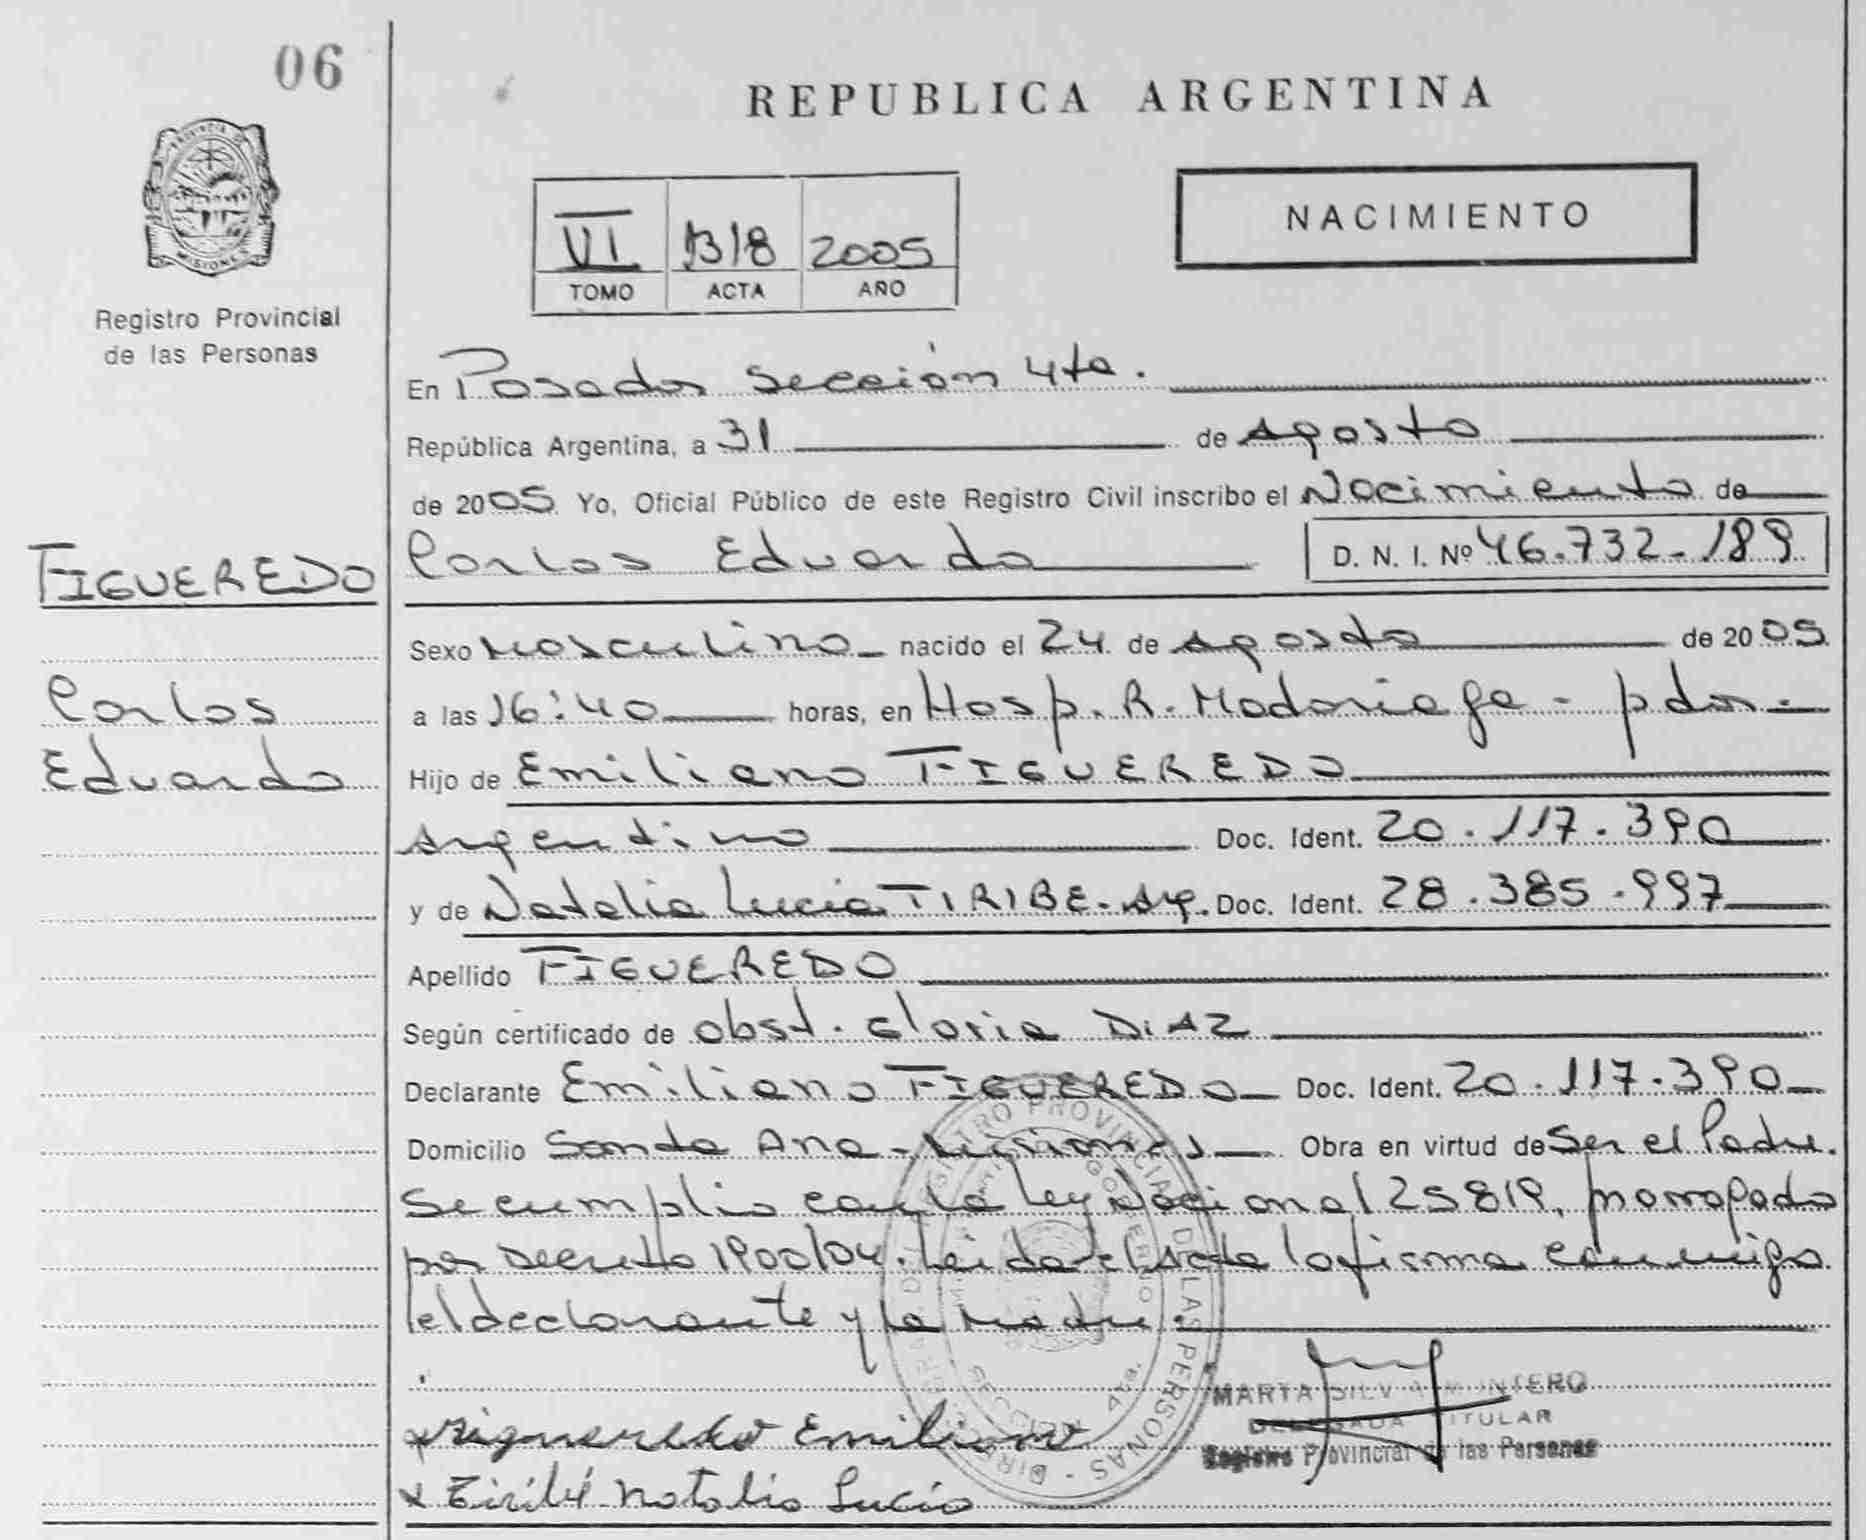 06
REPUBLICA ARGENTINA
PROVINCIA DE
MISIONES
Registro Provincial
de las Personas
VI 1318 2005
TOMO ACTA AÑO
NACIMIENTO
En Posadas Sección 4ta.
República Argentina, a 31 de Agosto
de 2005 Yo, Oficial Público de este Registro Civil inscribo el Nacimiento de
FIGUEREDO
Carlos Eduardo D. N. I. Nº 46.732.189
Sexo Masculino nacido el 24 de Agosto de 2005
Carlos
a las 16:40 horas, en Hosp. R. Madariaga - pdas.
Eduardo
Hijo de Emiliano FIGUEREDO
Argentino Doc. Ident. 20.117.390
y de Natalia Lucia TIRIBE - Arg. Doc. Ident. 28.385.997
Apellido FIGUEREDO
Según certificado de obst. Gloria DIAZ
Declarante Emiliano FIGUEREDO Doc. Ident. 20.117.390
Domicilio Santa Ana - Misiones Obra en virtud de Ser el Padre.
Se cumplio con la Ley Nacional 25819, prorrogado
por Decreto 1900/04. Leida el Acta la firma conmigo
el declarante y la Madre.
REGISTRO PROVINCIAL DE LAS PERSONAS
MARTA SILVIA MONTERO
DELEGADA TITULAR
Registro Provincial de las Personas
x Figueredo Emiliano
x Tiribé Natalia Lucia